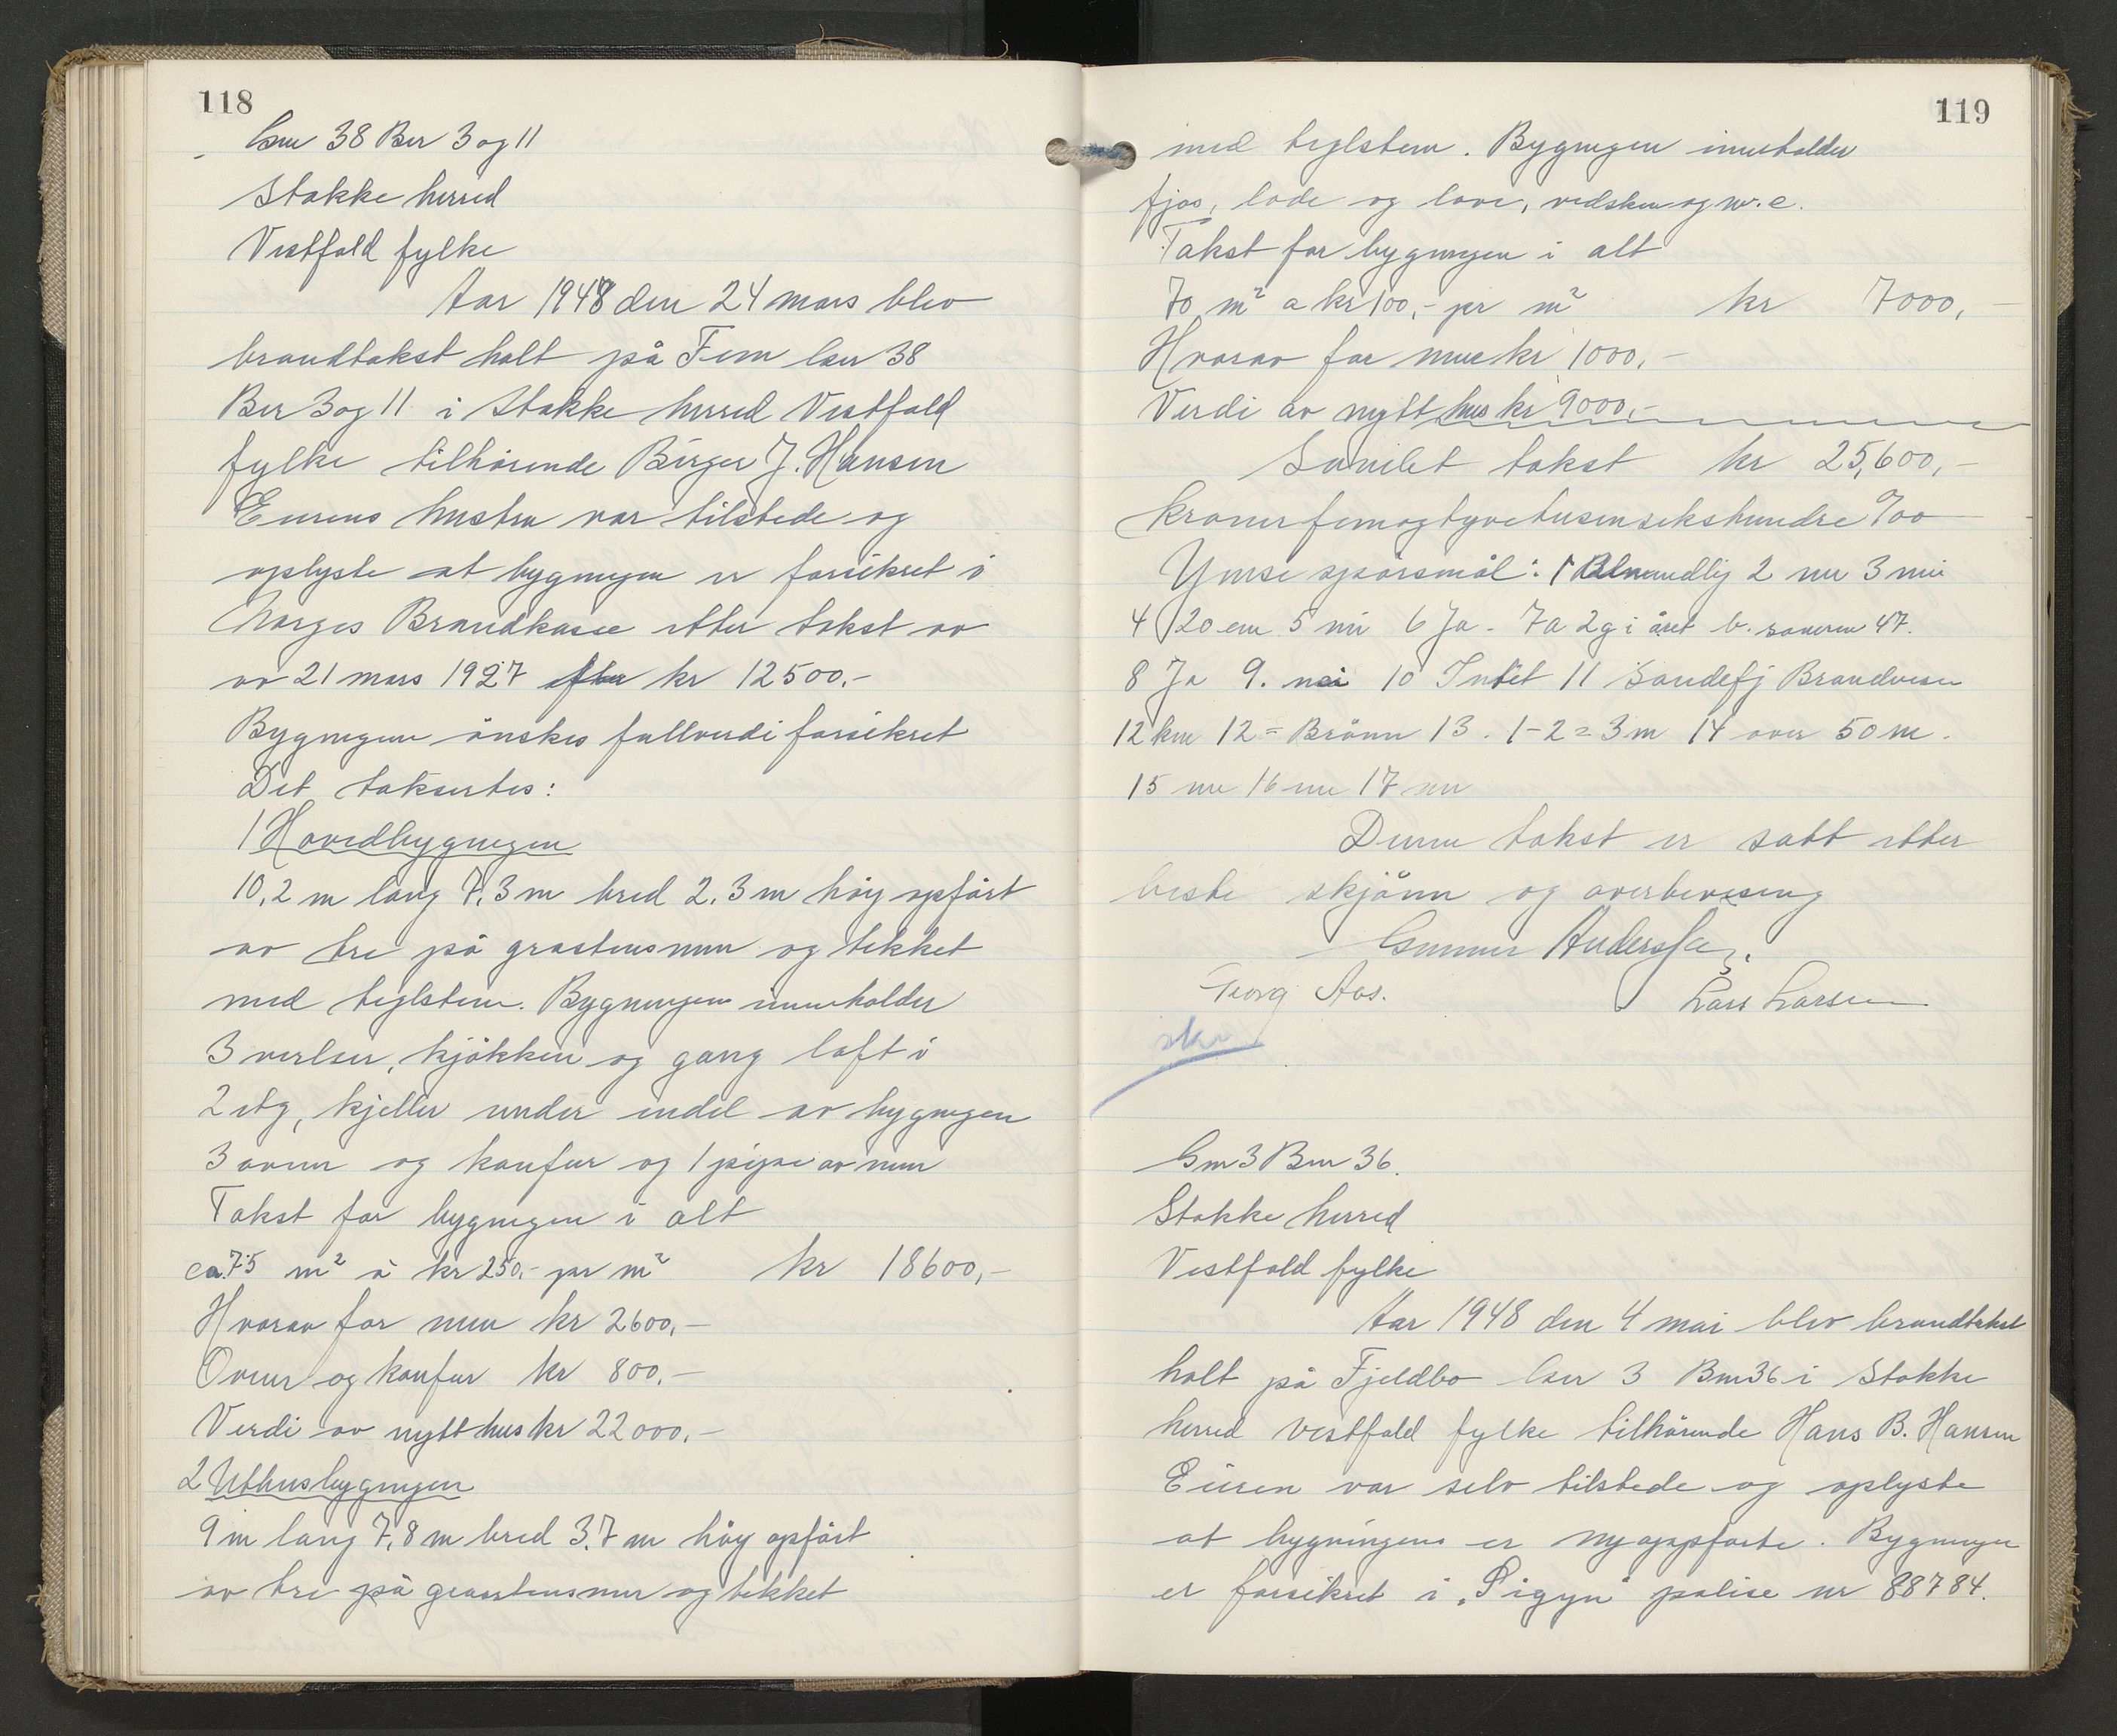 118
Gnr 38 Bnr 3 og 11
Stokke herred
Vestfold fylke
Aar 1948 den 24 mars blev
brandtakst holt på Fem Gnr 38
Bnr 3 og 11 i Stokke herred Vestfold
fylke tilhörende Birger J. Hansen
Eierens hustru var tilstede og
oplyste at bygningen er forsikret i
Norges Brandkasse etter takst av
av 21 mars 1927 for kr 12500.-
Bygningen önskes fullverdiforsikret
Det takseertes:
1 Hovedbygningen
10,2 m lang 7,3 m bred 2,3 m höy opfört
av tre på grastensmur og tekket
med teglsten. Bygningen inneholder
3 verelser, kjökken og gang loft i
2 etg, kjeller under endel av bygningen
3 ovner og komfur og 1 pipe av mur
Takst for bygningen i alt
ca. 75 m² à kr 250,- pr m² kr 18600,-
Hvorav for mur kr 2600,-
Ovner og komfur kr 800,-
Verdi av nytt hus kr 22000,-
2 Uthusbygningen
9 m lang 7,8 m bred 3,7 m höy opfört
av tre på grastensmur og tekket
119
med teglsten. Bygningen inneholder
fjös, lode og love, vedskur og w.c.
Takst for bygningen i alt
70 m² a kr 100,- pr m² kr 7000,-
Hvorav for mur kr 1000,-
Verdi av nytt hus kr 9000,-
Samlet takst kr 25,600,-
kroner femogtyvetusensekshundre 0/00
Ymse spörsmål: 1 Alminndlig 2 nei 3 nei
4 120 cm 5 nei 6 Ja - 7a 2 g i året b. 47.
8 Ja 9. nei 10 Intet 11 Sandefj Brandvesen
12 km 12 = Brönn 13. 1-2 = 3 m 14 over 50 m.
15 nei 16 nei 17 nei
Denne takst er satt etter
beste skjönn og overbevisning
Gunnar Anderssen.
Georg Aas. Lars Larsen
Gnr 3 Bnr 36.
Stokke herred
Vestfold fylke
Aar 1948 den 4 mai blev brandtakst
holt på Fjeldbo Gnr 3 Bnr 36 i Stokke
herred Vestfold fylke tilhörende Hans B. Hansen
Eieren var selv tilstede og oplyste
at bygningene er nyoppförte. Bygningen
er forsikret i "Sigyn" polise nr 88784.